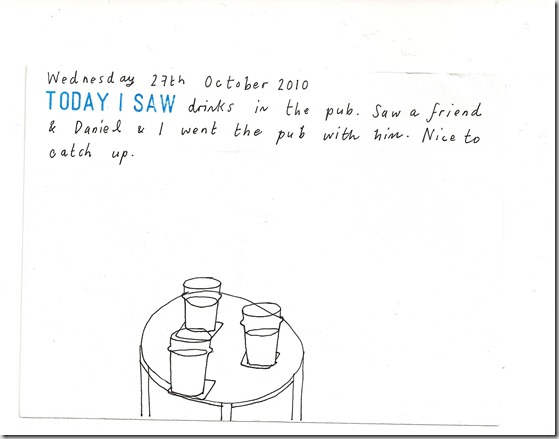 Wednesday 27th October 2010
TODAY I SAW drinks in the pub. Saw a friend
& Daniel & I went the pub with him. Nice to
catch up.